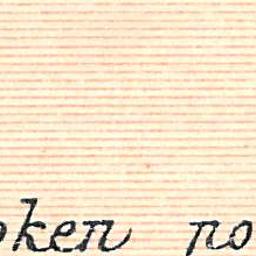 oken no